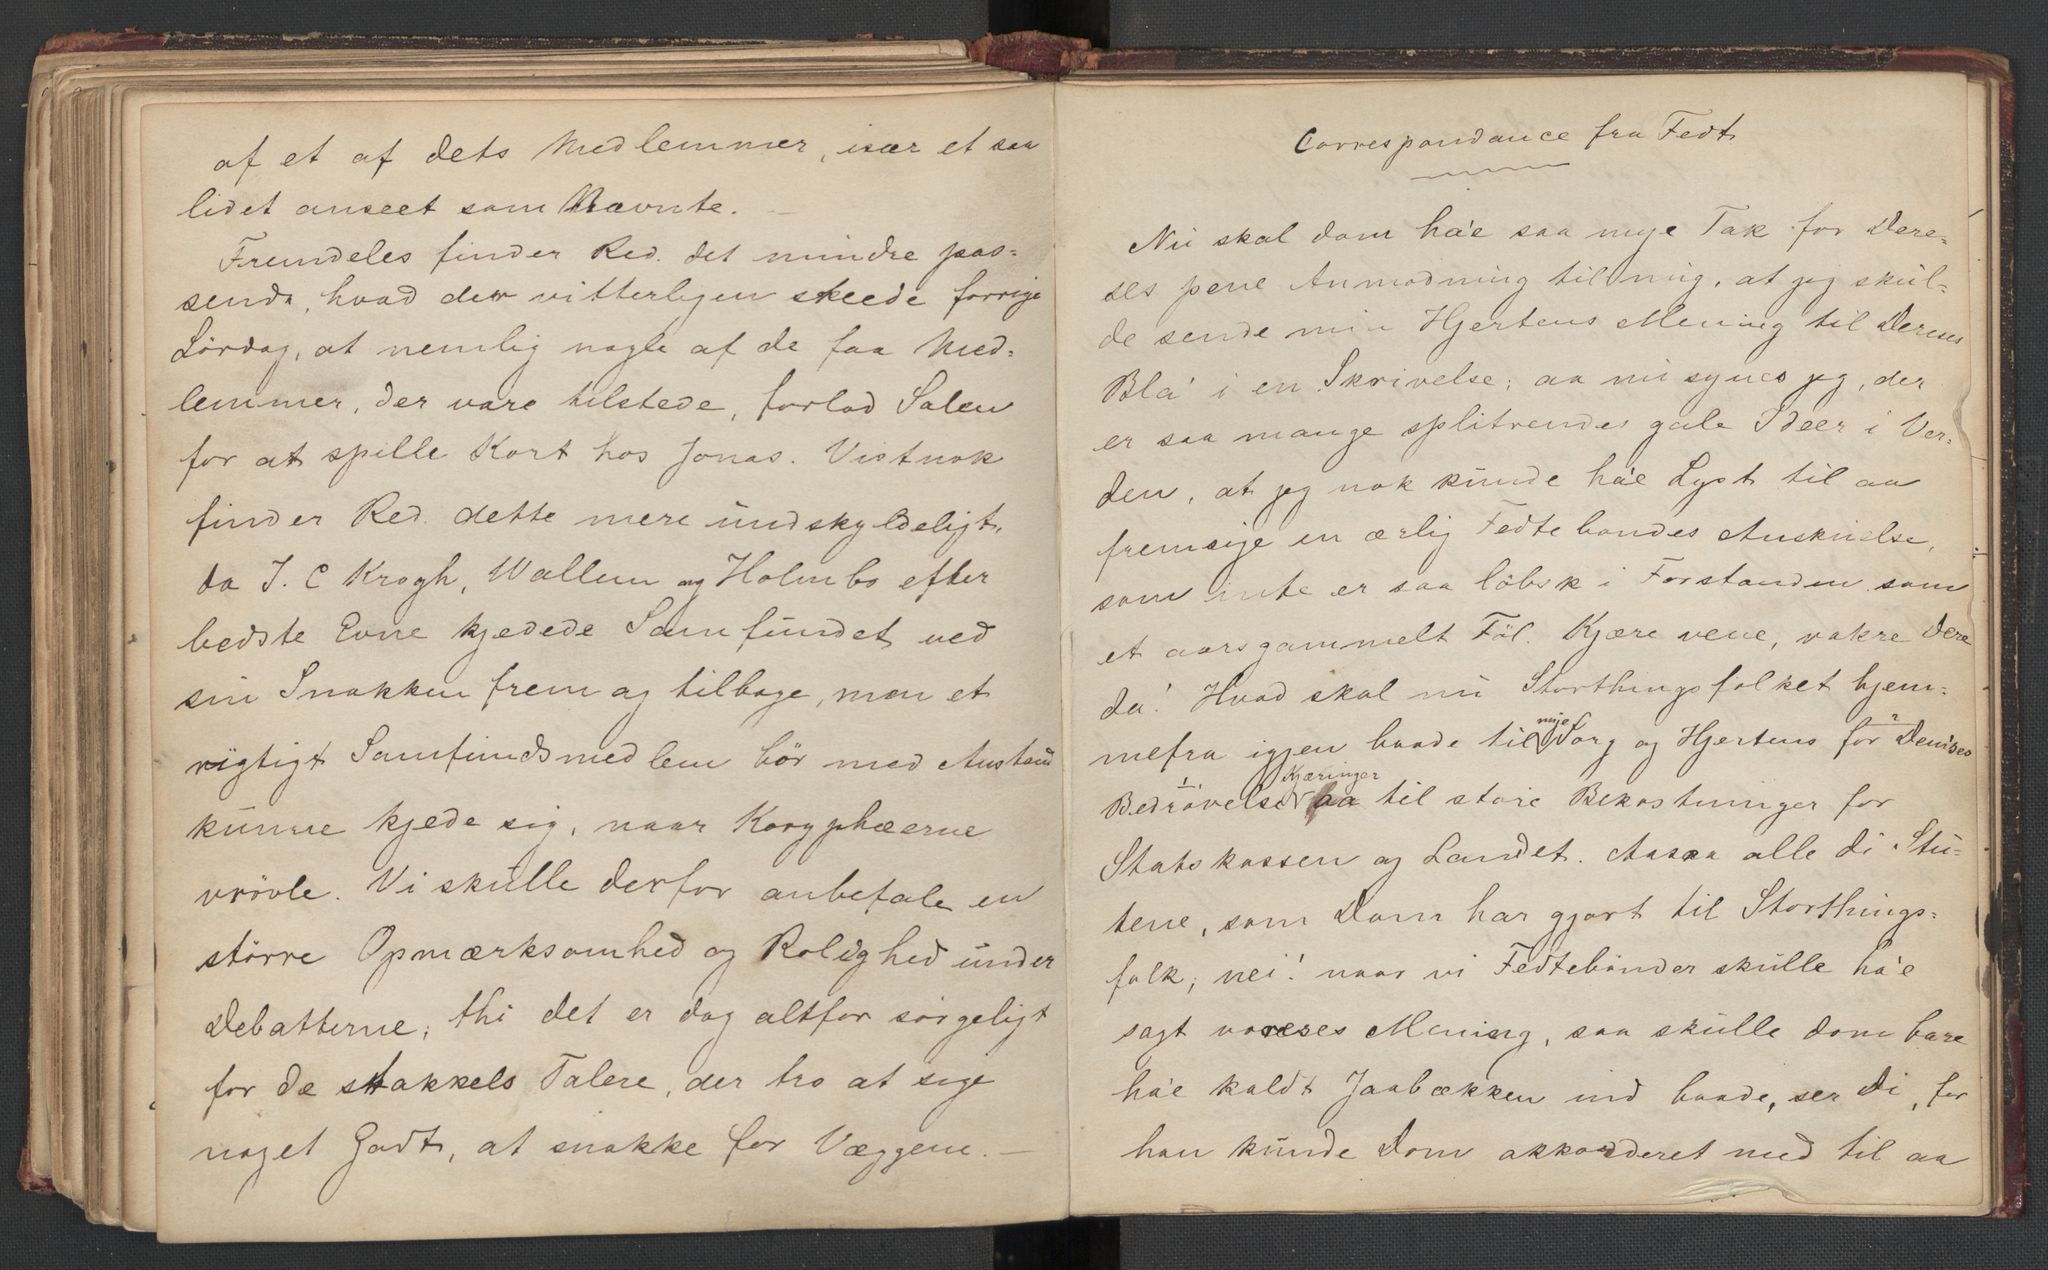 af et af dets Medlemmer, især et saa
lidet anseet som Nævnte. —
Fremdeles finder Red. det mindre pas-
sende, hvad der vitterligen skeede forrige
Lørdag, at nemlig nogle af de faa Med-
lemmer, der vare tilstede, forlod Salen
for at spille Kort hos Jonas. Vistnok
finder Red. dette mere undskyldeligt,
da J. C Krogh, Wallem og Holmbo efter
bedste Evne kjedede Samfundet ved
sin Snakken frem og tilbage, men et
rigtigt Samfundsmedlem bör med Anstand
kunne kjede sig, naar Koryphæerne
vrövle. Vi skulle derfor anbefale en
större Opmærksomhed og Rolighed under
Debatterne; thi det er dog altfor sörgeligt
for de stakkels Talere, der tro at sige
noget Godt, at snakke for Væggene. —
Correspondance fra Fedt
Nu skal dom ha'e saa mye Tak for Dere-
ses pene Anmodning til mig, at jeg skul-
de sende min Hjertens Mening til Deres
Bla' i en Skrivelse; aa nu synes jeg, der
er saa mange splitrendes gale Ideer i Ver-
den, at jeg nok kunde ha'e Lyst til aa
fremsige en ærlig Fedtebondes Anskuelse,
som inte er saa löbsk i Forstanden som
et aarsgammelt Föl. Kjære vene, vakre Dere
da! Hvad skal nu Storthingsfolket hjem-
mefra igjen baade til mye Sorg og Hjertens for Denses
Bedrövelse Kjæringer aa til store Bekostninger for
Statskassen og Landet. Aasaa alle di Stu-
tene, som Dom har gjort til Storthings-
folk; nei! naar vi Fedtebönder skulle ha'e
sagt voreses Mening, saa skulle dom bare
ha'e kaldt Jaabækken ind baade, ser Di, for
han kunde Dom akkorderet med til aa